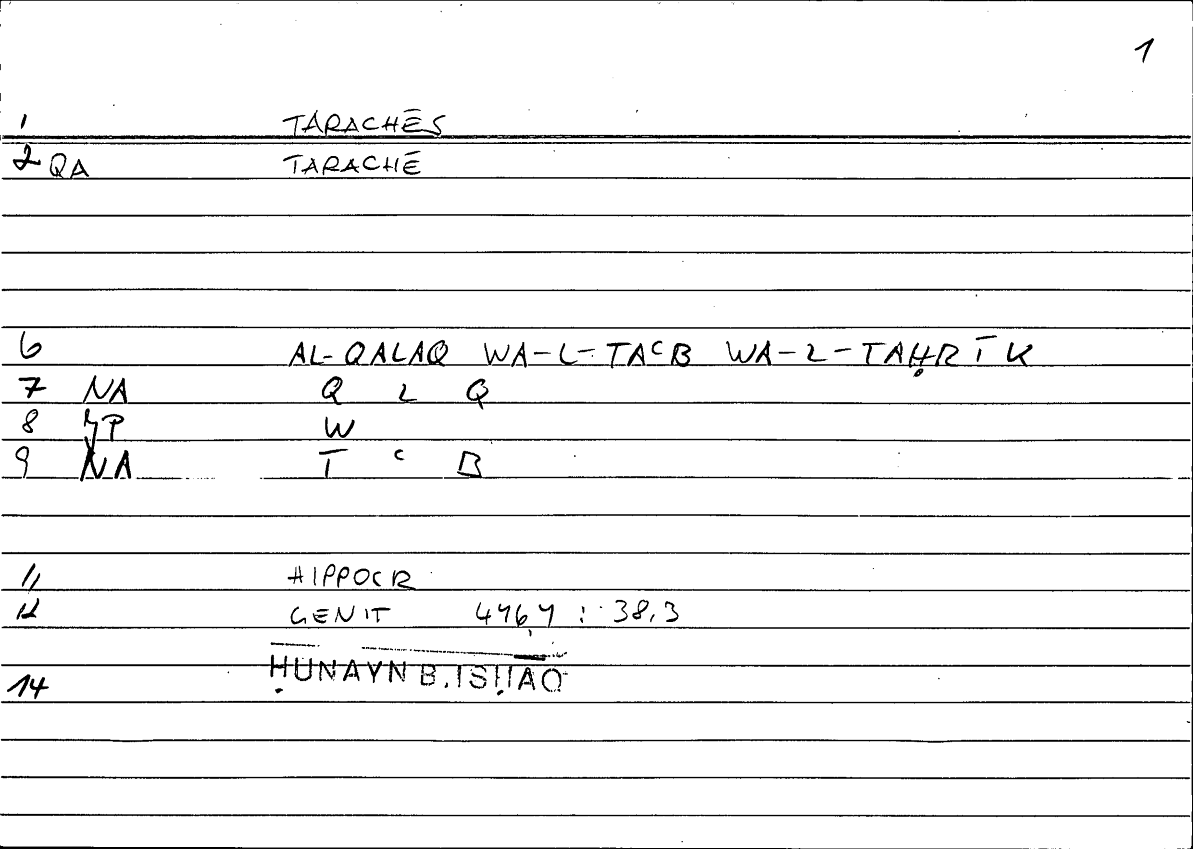 1
1 TARACHĒS
2 QA TARACHĒ
6 AL-QALAQ WA-L-TAʿB WA-L-TAḤRĪK
7 NA Q L Q
8 YP W
9 NA T ʿ B
11 HIPPOCR
12 GENIT 476,7 : 38,3
14 ḤUNAYN B. ISḤĀQ